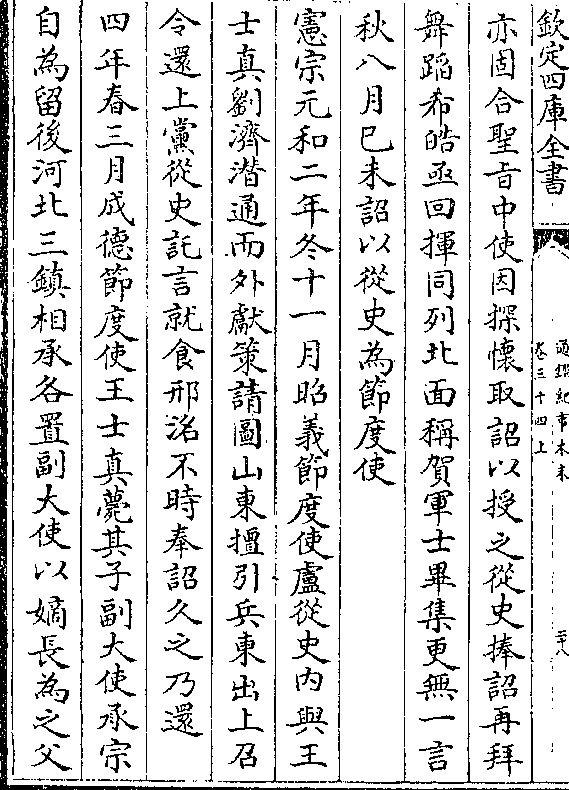 欽定四庫全書
通鑑紀事本末
卷三十四上
二十八
亦固合聖旨中使因探懷取詔以授之從史捧詔再拜
舞蹈希皓亟回揮同列北面稱賀軍士畢集更無一言
秋八月己未詔以從史為節度使
憲宗元和二年冬十一月昭義節度使盧從史内與王
士真劉濟潛通而外獻策請圖山東擅引兵東出上召
令還上黨從史託言就食邢洺不時奉詔久之乃還
四年春三月成德節度使王士真薨其子副大使承宗
自為留後河北三鎮相承各置副大使以嫡長為之父